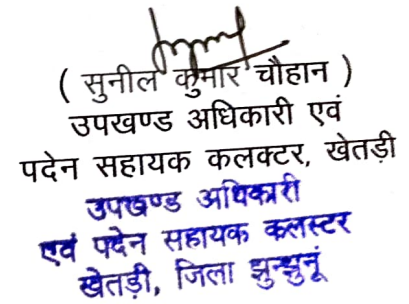 ( सुनील कुमार चौहान )
उपखण्ड अधिकारी एवं
पदेन सहायक कलक्टर, खेतड़ी
उपखण्ड अधिकारी
एवं पदेन सहायक कलस्टर
खेतड़ी, जिला झुन्झुनूं